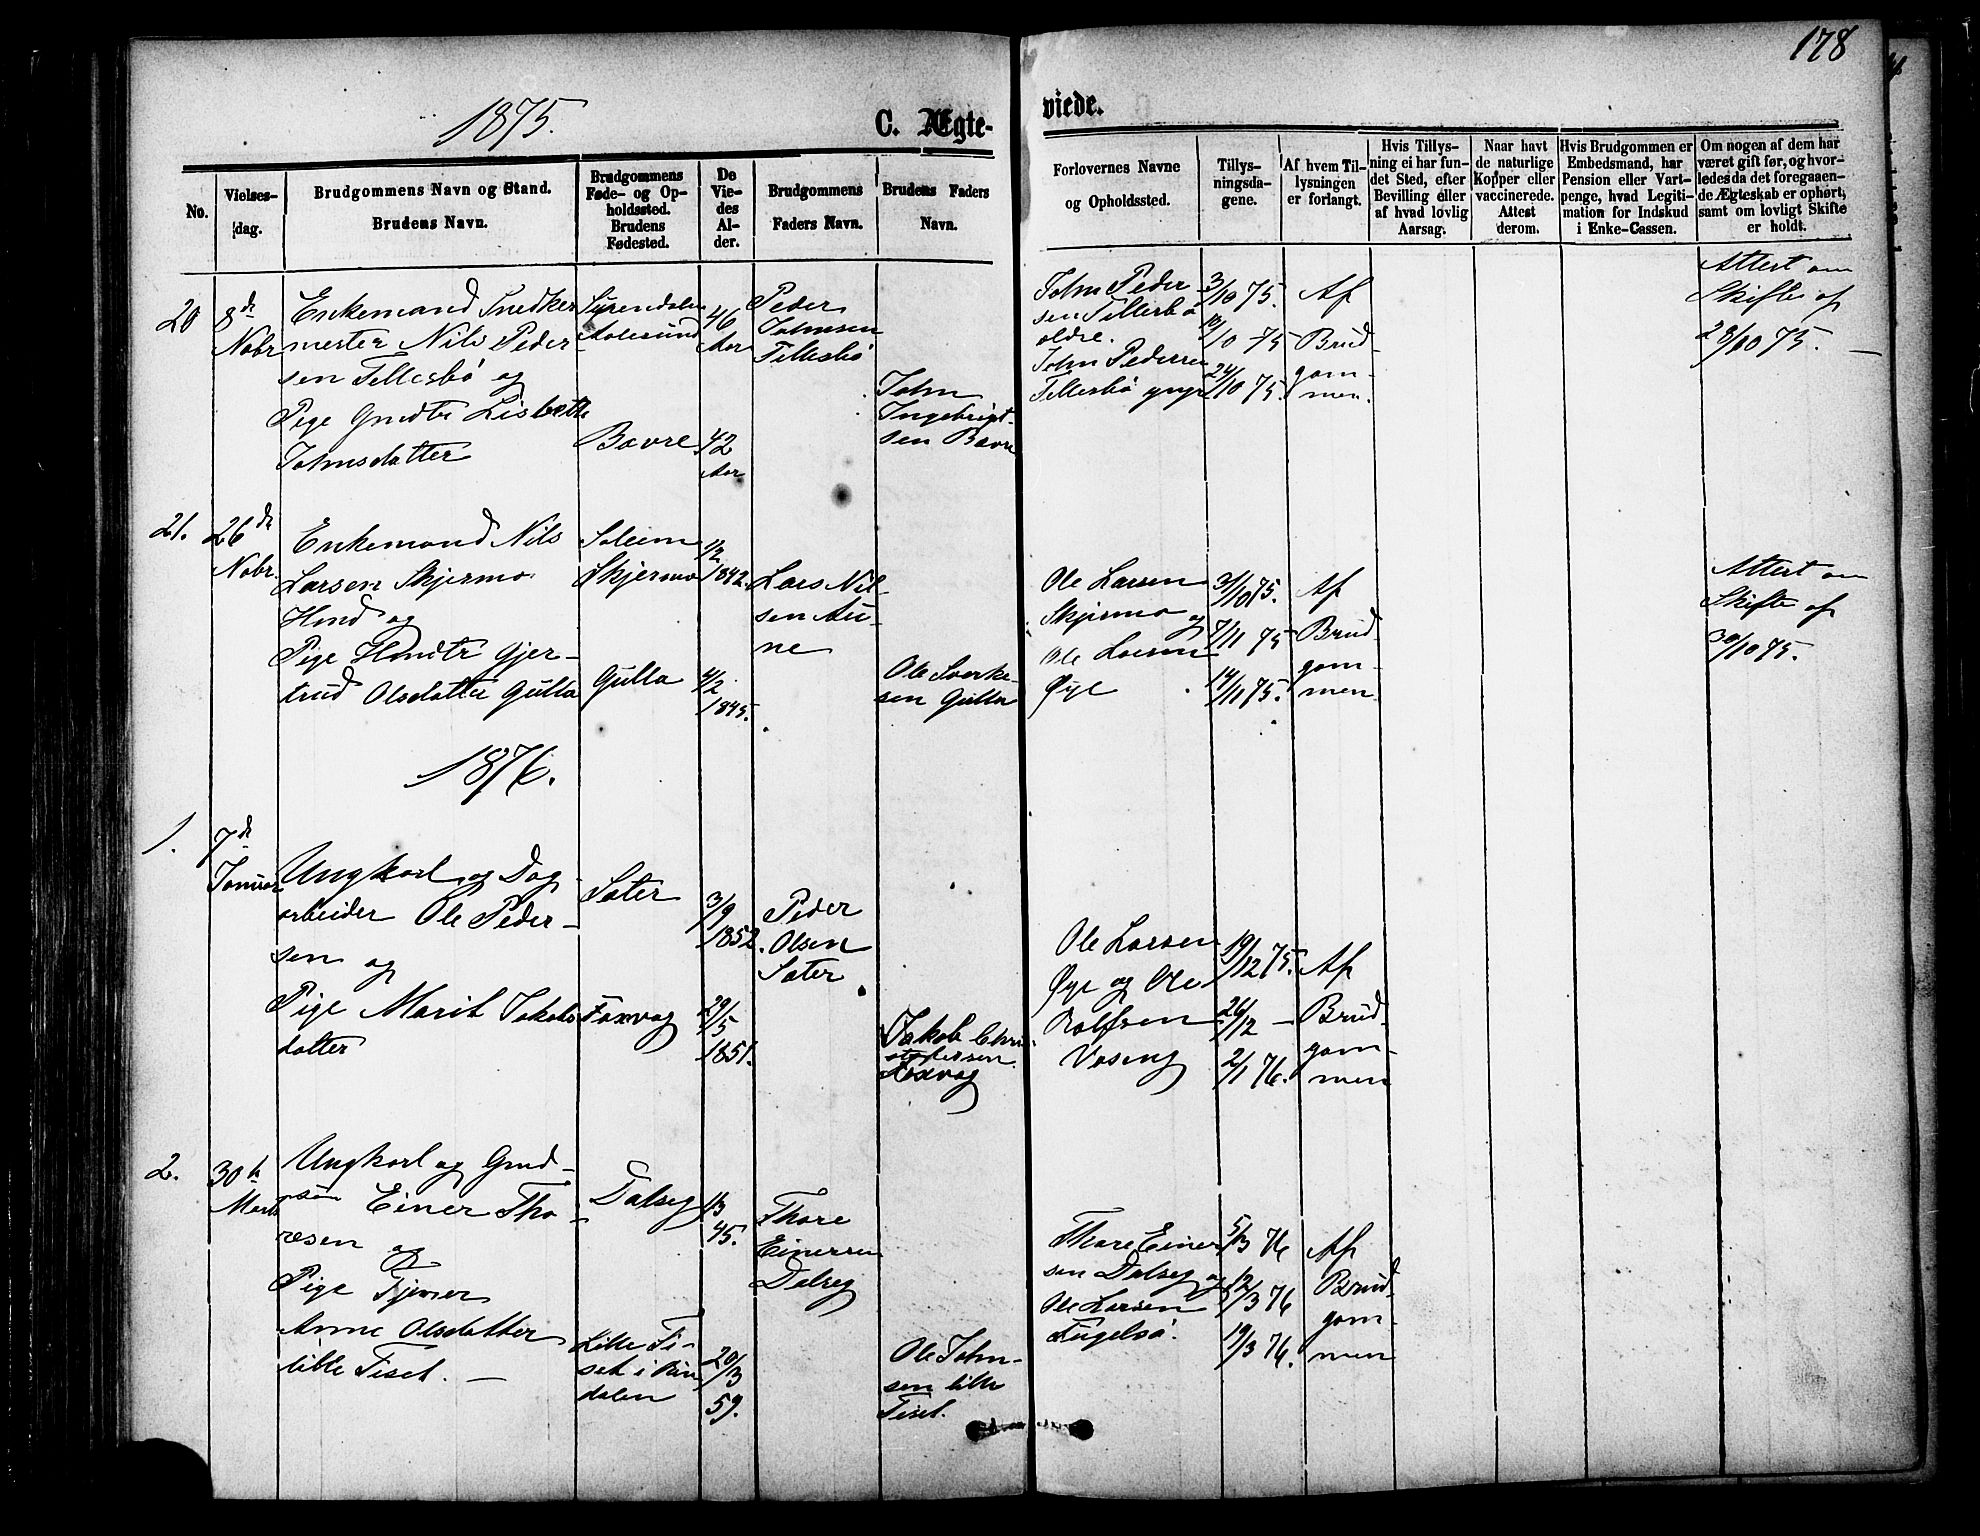 178
1875.
C. Ægte-
viede.
No.
Vielses-
dag.
Brudgommens Navn og Stand.
Brudens Navn.
Brudgommens
Føde- og Op-
holdssted.
Brudens
Fødested.
De
Vie-
des
Al-
der.
Brudgommens
Faders Navn.
Brudens Faders
Navn.
Forlovernes Navne
og Opholdssted.
Tillys-
ningsda-
gene.
Af hvem Til-
lysningen
er forlangt.
Hvis Tillys-
ning ei har fun-
det Sted, efter
Bevilling eller
af hvad lovlig
Aarsag.
Naar havt
de naturlige
Kopper eller
vaccinerede.
Attest
derom.
Hvis Brudgommen er
Embedsmand, har
Pension eller Vart-
penge, hvad Legiti-
mation for Indskud
i Enke-Cassen.
Om nogen af dem har
været gift før, og hvor-
ledes da det foregaaen-
de Ægteskab er ophørt,
samt om lovligt Skifte
er holdt.
20
8de
Nobr
Enkemand Snedker
mester Nils Peder
sen Tellesbø og
Pige Lisbeth
Johnsdatter
Surendalen
Aalesund
Bævre
46
Aar
42
Aar
Peder
Johnsen
Tellesbø
John
Ingebrigt-
sen Bævre
John Peder
sen Tellesbø
ældre.
John Pedersen
Tellesbø yngr
3/10 75.
10/10 75
24/10 75.
Af
Brud-
gom-
men.
Attest om
Skifte af
28/10 75.
21.
26de
Nobr.
Enkemand Nils
Larsen Skjermo
Hmd og
Pige Gjer-
trud Olsdatter Gulla
Soleim
Skjermo
Gulla
1/2
1842.
4/2
1845.
Lars Nil-
sen Au-
ne
Ole Sverke-
sen Gulla
Ole Larsen
Skjermo og
Ole Larsen
Øye
31/10 75.
7/11 75
14/11 75.
Af
Brud-
gom-
men.
Attest om
Skifte af
30/10 75.
1876.
1.
7de
Januar
Ungkarl og Dag-
arbeider Ole Peder-
sen og
Pige Marit Jakobs
datter
Sæter
Foxvag
3/9
1852.
29/5
1851.
Peder
Olsen
Sæter
Jakob Chri-
stofersen
Foxvag
Ole Larsen
Øye og Ole
Rolfsen
Vaseng
19/12 75.
26/12 —
2/1 76.
Af
Brud-
gom-
men
2.
30te
Marts
Ungkarl og Grnd-
søn Einer Tho-
resen og
Pige Tjener
Anne Olsdatter
lille Tiset.
Dalseg
Lille Ti-
set i Rin
dalen
1/3
45.
20/3
59.
Thore
Einersen
Dalseg
Ole John-
sen lille
Tiset.
Thore Einer
sen Dalseg og
Ole Larsen
5/3 76
12/3 76
19/3 76.
Af
Brud-
gom-
men